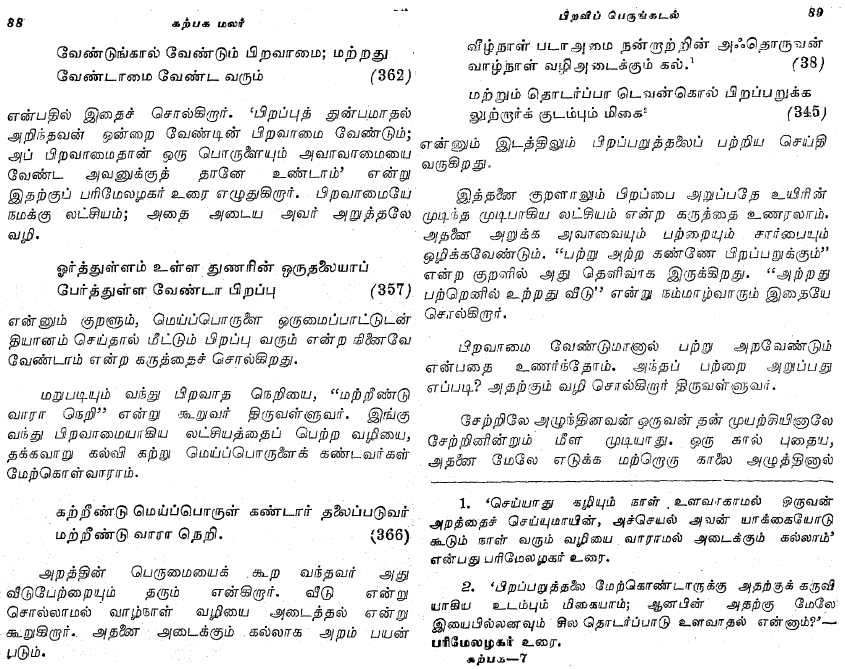 88
கற்பக மலர்
வேண்டுங்கால் வேண்டும் பிறவாமை; மற்றது
வேண்டாமை வேண்ட வரும் (362)
என்பதில் இதைச் சொல்கிறார். 'பிறப்புத் துன்பமாதல்
அறிந்தவன் ஒன்றை வேண்டின் பிறவாமை வேண்டும்;
அப் பிறவாமைதான் ஒரு பொருளையும் அவாவாமையை
வேண்ட அவனுக்குத் தானே உண்டாம்' என்று
இதற்குப் பரிமேலழகர் உரை எழுதுகிறார். பிறவாமையே
நமக்கு லட்சியம்; அதை அடைய அவர் அறுத்தலே
வழி.
ஓர்த்துள்ளம் உள்ள துணரின் ஒருதலையாப்
பேர்த்துள்ள வேண்டா பிறப்பு (357)
என்னும் குறளும், மெய்ப்பொருளை ஒருமைப்பாட்டுடன்
தியானம் செய்தால் மீட்டும் பிறப்பு வரும் என்ற நினைவே
வேண்டாம் என்ற கருத்தைச் சொல்கிறது.
மறுபடியும் வந்து பிறவாத நெறியை, "மற்றீண்டு
வாரா நெறி" என்று கூறுவர் திருவள்ளுவர். இங்கு
வந்து பிறவாமையாகிய லட்சியத்தைப் பெற்ற வழியை,
தக்கவாறு கல்வி கற்று மெய்ப்பொருளைக் கண்டவர்கள்
மேற்கொள்வாராம்.
கற்றீண்டு மெய்ப்பொருள் கண்டார் தலைப்படுவர்
மற்றீண்டு வாரா நெறி. (366)
அறத்தின் பெருமையைக் கூற வந்தவர் அது
வீடுபேற்றையும் தரும் என்கிறார். வீடு என்று
சொல்லாமல் வாழ்நாள் வழியை அடைத்தல் என்று
கூறுகிறார். அதனை அடைக்கும் கல்லாக அறம் பயன்
படும்.
பிறவிப் பெருங்கடல்
89
வீழ்நாள் படாஅமை நன்றாற்றின் அஃதொருவன்
வாழ்நாள் வழிஅடைக்கும் கல்.¹ (38)
மற்றும் தொடர்ப்பா டெவன்கொல் பிறப்பறுக்க
லுற்றார்க் குடம்பும் மிகை² (345)
என்னும் இடத்திலும் பிறப்பறுத்தலைப் பற்றிய செய்தி
வருகிறது.
இத்தனை குறளாலும் பிறப்பை அறுப்பதே உயிரின்
முடிந்த முடிபாகிய லட்சியம் என்ற கருத்தை உணரலாம்.
அதனை அறுக்க அவாவையும் பற்றையும் சார்பையும்
ஒழிக்கவேண்டும். "பற்று அற்ற கண்ணே பிறப்பறுக்கும்"
என்ற குறளில் அது தெளிவாக இருக்கிறது. "அற்றது
பற்றெனில் உற்றது வீடு" என்று நம்மாழ்வாரும் இதையே
சொல்கிறார்.
பிறவாமை வேண்டுமானால் பற்று அறவேண்டும்
என்பதை உணர்ந்தோம். அந்தப் பற்றை அறுப்பது
எப்படி? அதற்கும் வழி சொல்கிறார் திருவள்ளுவர்.
சேற்றிலே அழுந்தினவன் ஒருவன் தன் முயற்சியினாலே
சேற்றினின்றும் மீள முடியாது. ஒரு கால் புதைய,
அதனை மேலே எடுக்க மற்றொரு காலை அழுத்தினால்
1. 'செய்யாது கழியும் நாள் உளவாகாமல் ஒருவன்
அறத்தைச் செய்யுமாயின், அச்செயல் அவன் யாக்கையோடு
கூடும் நாள் வரும் வழியை வாராமல் அடைக்கும் கல்லாம்'
என்பது பரிமேலழகர் உரை.
2. 'பிறப்பறுத்தலை மேற்கொண்டாருக்கு அதற்குக் கருவி
யாகிய உடம்பும் மிகையாம்; ஆனபின் அதற்கு மேலே
இயைபில்லனவும் சில தொடர்ப்பாடு உளவாதல் என்னாம்?'—
பரிமேலழகர் உரை.
கற்பக—7